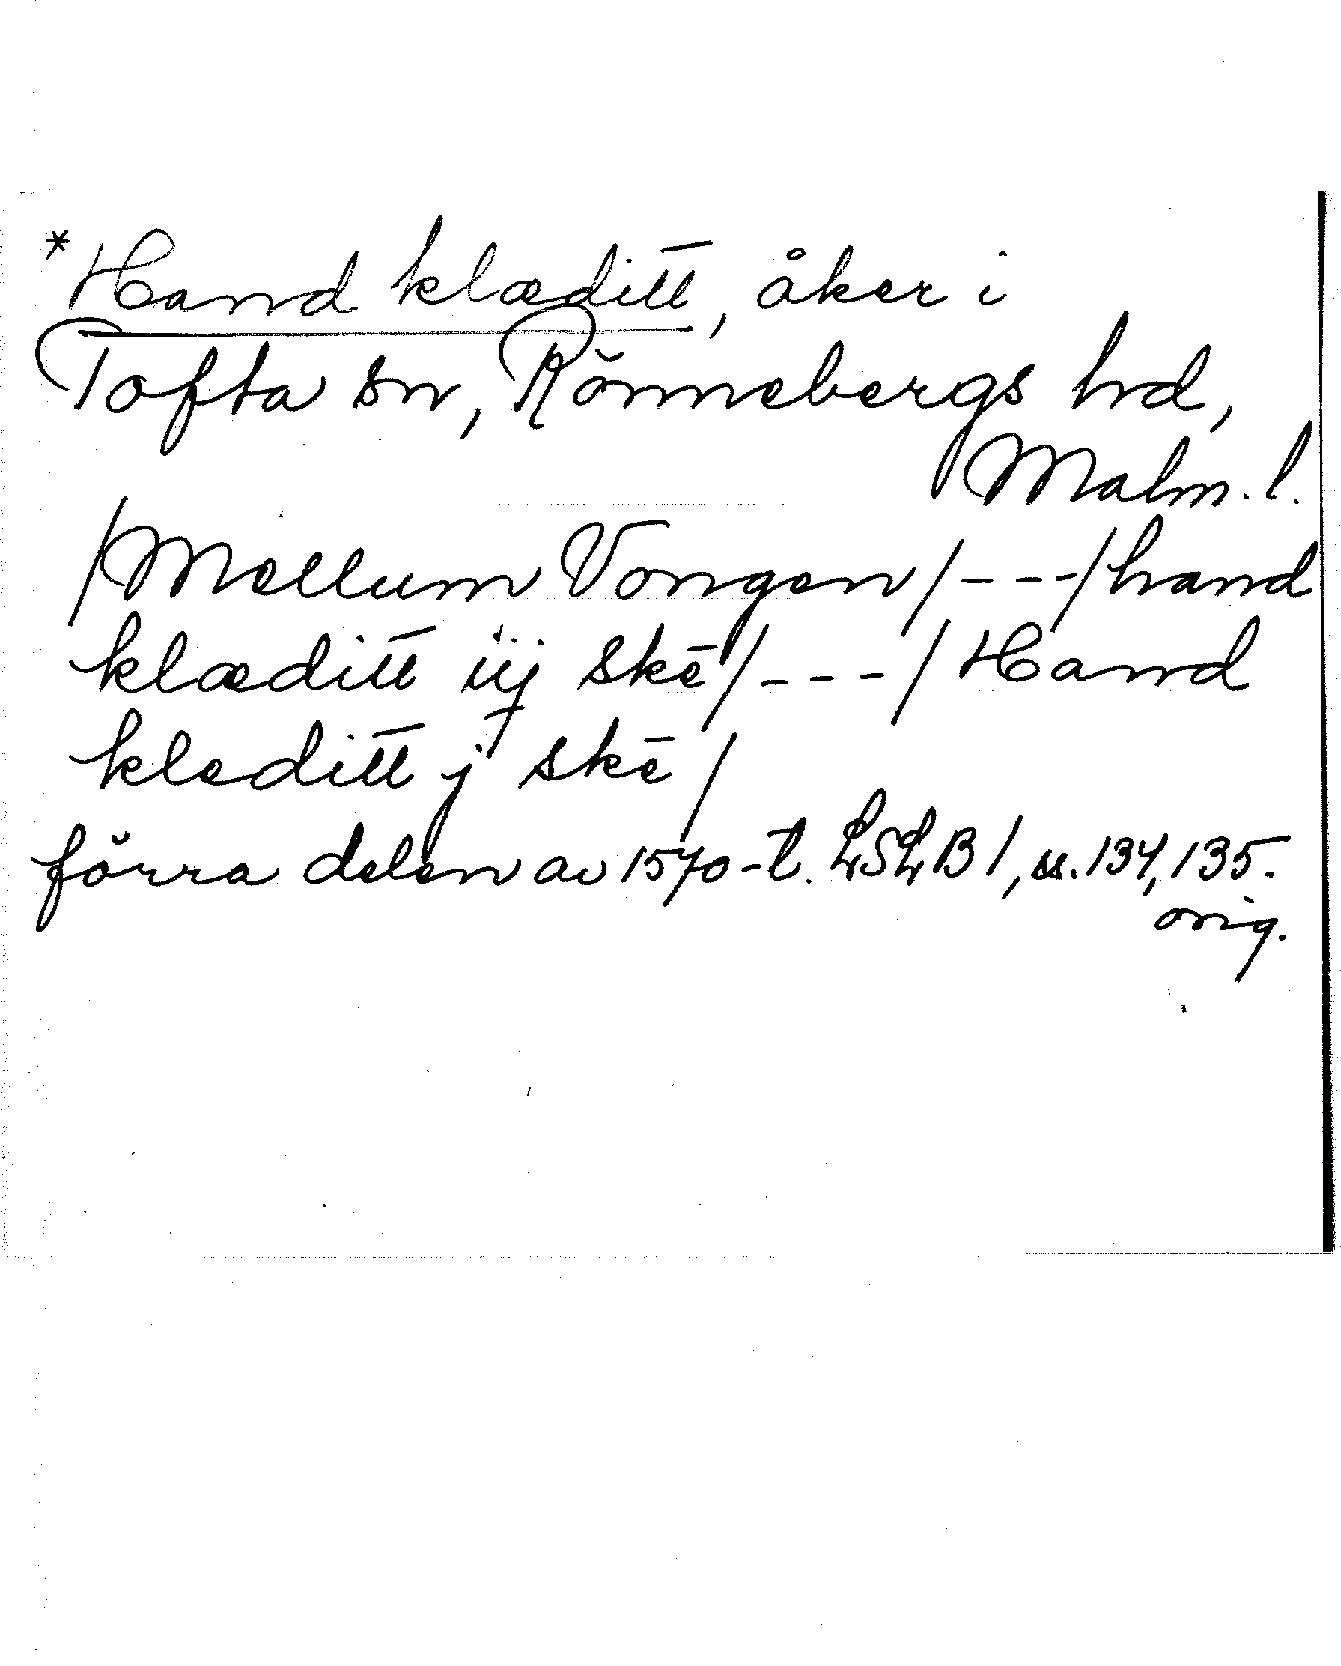 *Hand klæditt, åker i
Tofta sn, Rönnebergs hd,
Malm. l.
/Mellum Vongen/---/hand
klæditt iij skē/---/Hand
kleditt j skē/
förra delen av 1570-t. LSLB 1, ss. 134, 135.
orig.